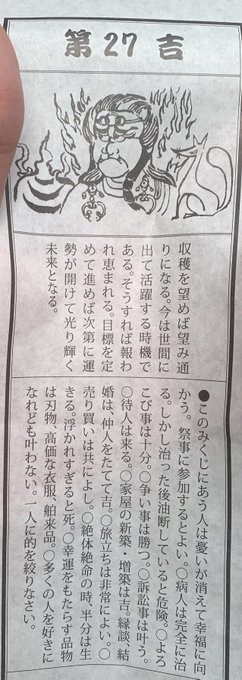 第27 吉
収穫を望めば望み通
りになる。今は世間に
出て活躍する時機で
ある。そうすれば報わ
れ恵まれる。目標を定
めて進めば次第に運
勢が開けて光り輝く
未来となる。
●このみくじにあう人は憂いが消えて幸福に向
かう。祭事に参加するとよい。○病人は完全に治
る。しかし治った後油断していると危険。○よろ
こび事は十分。○争い事は勝つ。○訴訟事は叶う。
○待人は来る。○家屋の新築・増築は吉。縁談、結
婚は、仲人をたてて吉。○旅立ちは非常によい。○
売り買いは共によし。○絶体絶命の時、半分は生
きる。浮かれすぎると死。○幸運をもたらす品物
は刃物、高価な衣服、舶来品。○多くの人を好きに
なれども叶わない。一人に的を絞りなさい。